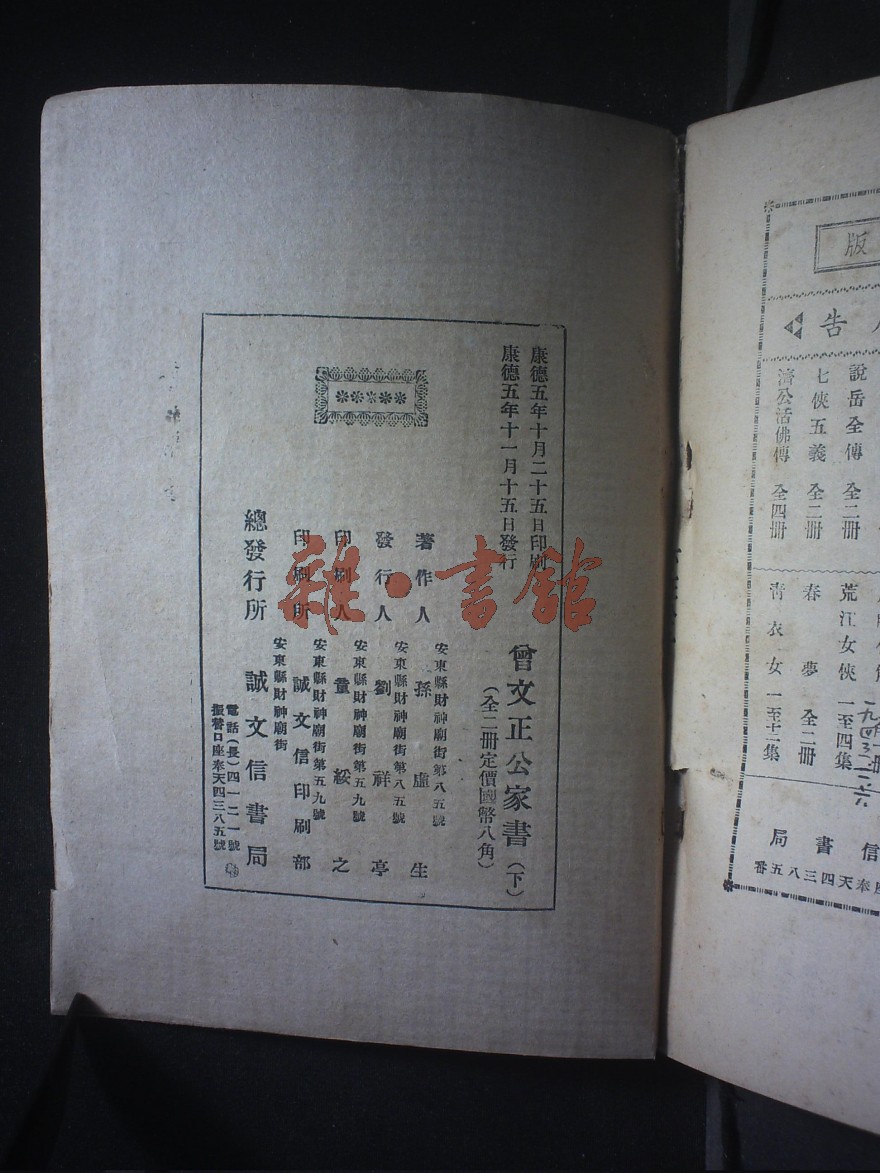 版
告
說岳全傳 全二冊
七俠五義 全二冊
濟公活佛傳 全四冊
荒江女俠 一至四集
春夢 全二冊
青衣女 一至十二集
信書局
座奉天四三八五番
康德五年十月二十五日印刷
康德五年十一月十五日發行
曾文正公家書(下)
(全二冊定價國幣八角)
安東縣財神廟街第八五號
著作人 孫虛生
安東縣財神廟街第八五號
發行人 劉祥亭
安東縣財神廟街第五九號
印刷人 董綏之
安東縣財神廟街第五九號
印刷所 誠文信印刷部
安東縣財神廟街
總發行所 誠文信書局
電話(長)四一二一號
振替口座奉天四三八五號
雜·書館